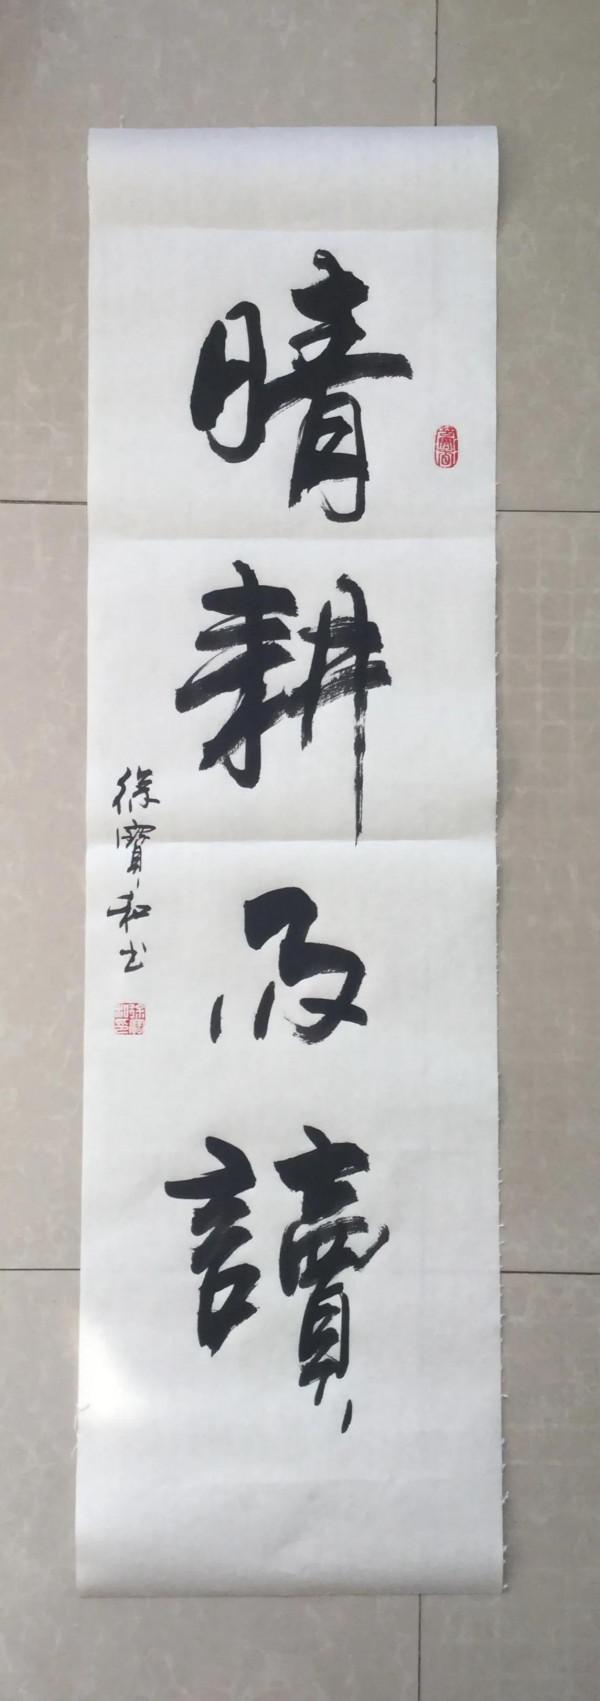 晴耕雨讀
徐寶和书